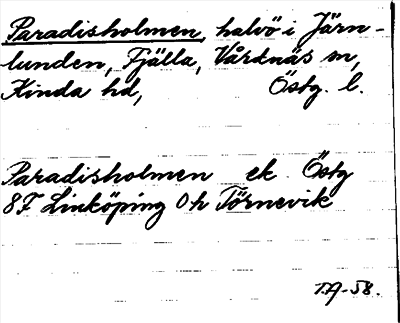 Paradisholmen, halvö i Järn-
lunden, Fjälla, Vårdnäs sn,
Kinda hd, Östg. l.
Paradisholmen ek Östg
8F Linköping 0h Törnevik
T.A-58.